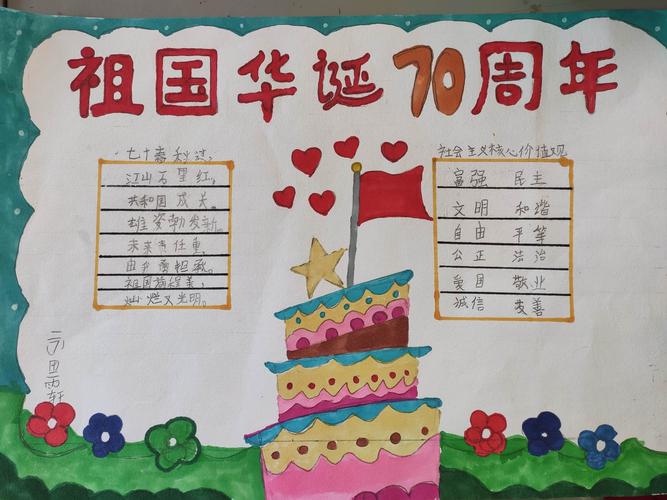 祖国华诞70周年
七十春秋
江山万里红,
共和国成长。
雄姿勃发新。
未来责任重,
由我勇担承。
祖国前程美,
灿烂又光明。
社会主义核心价值观
富强 民主
文明 和谐
自由 平等
公正 法治
爱国 敬业
诚信 友善